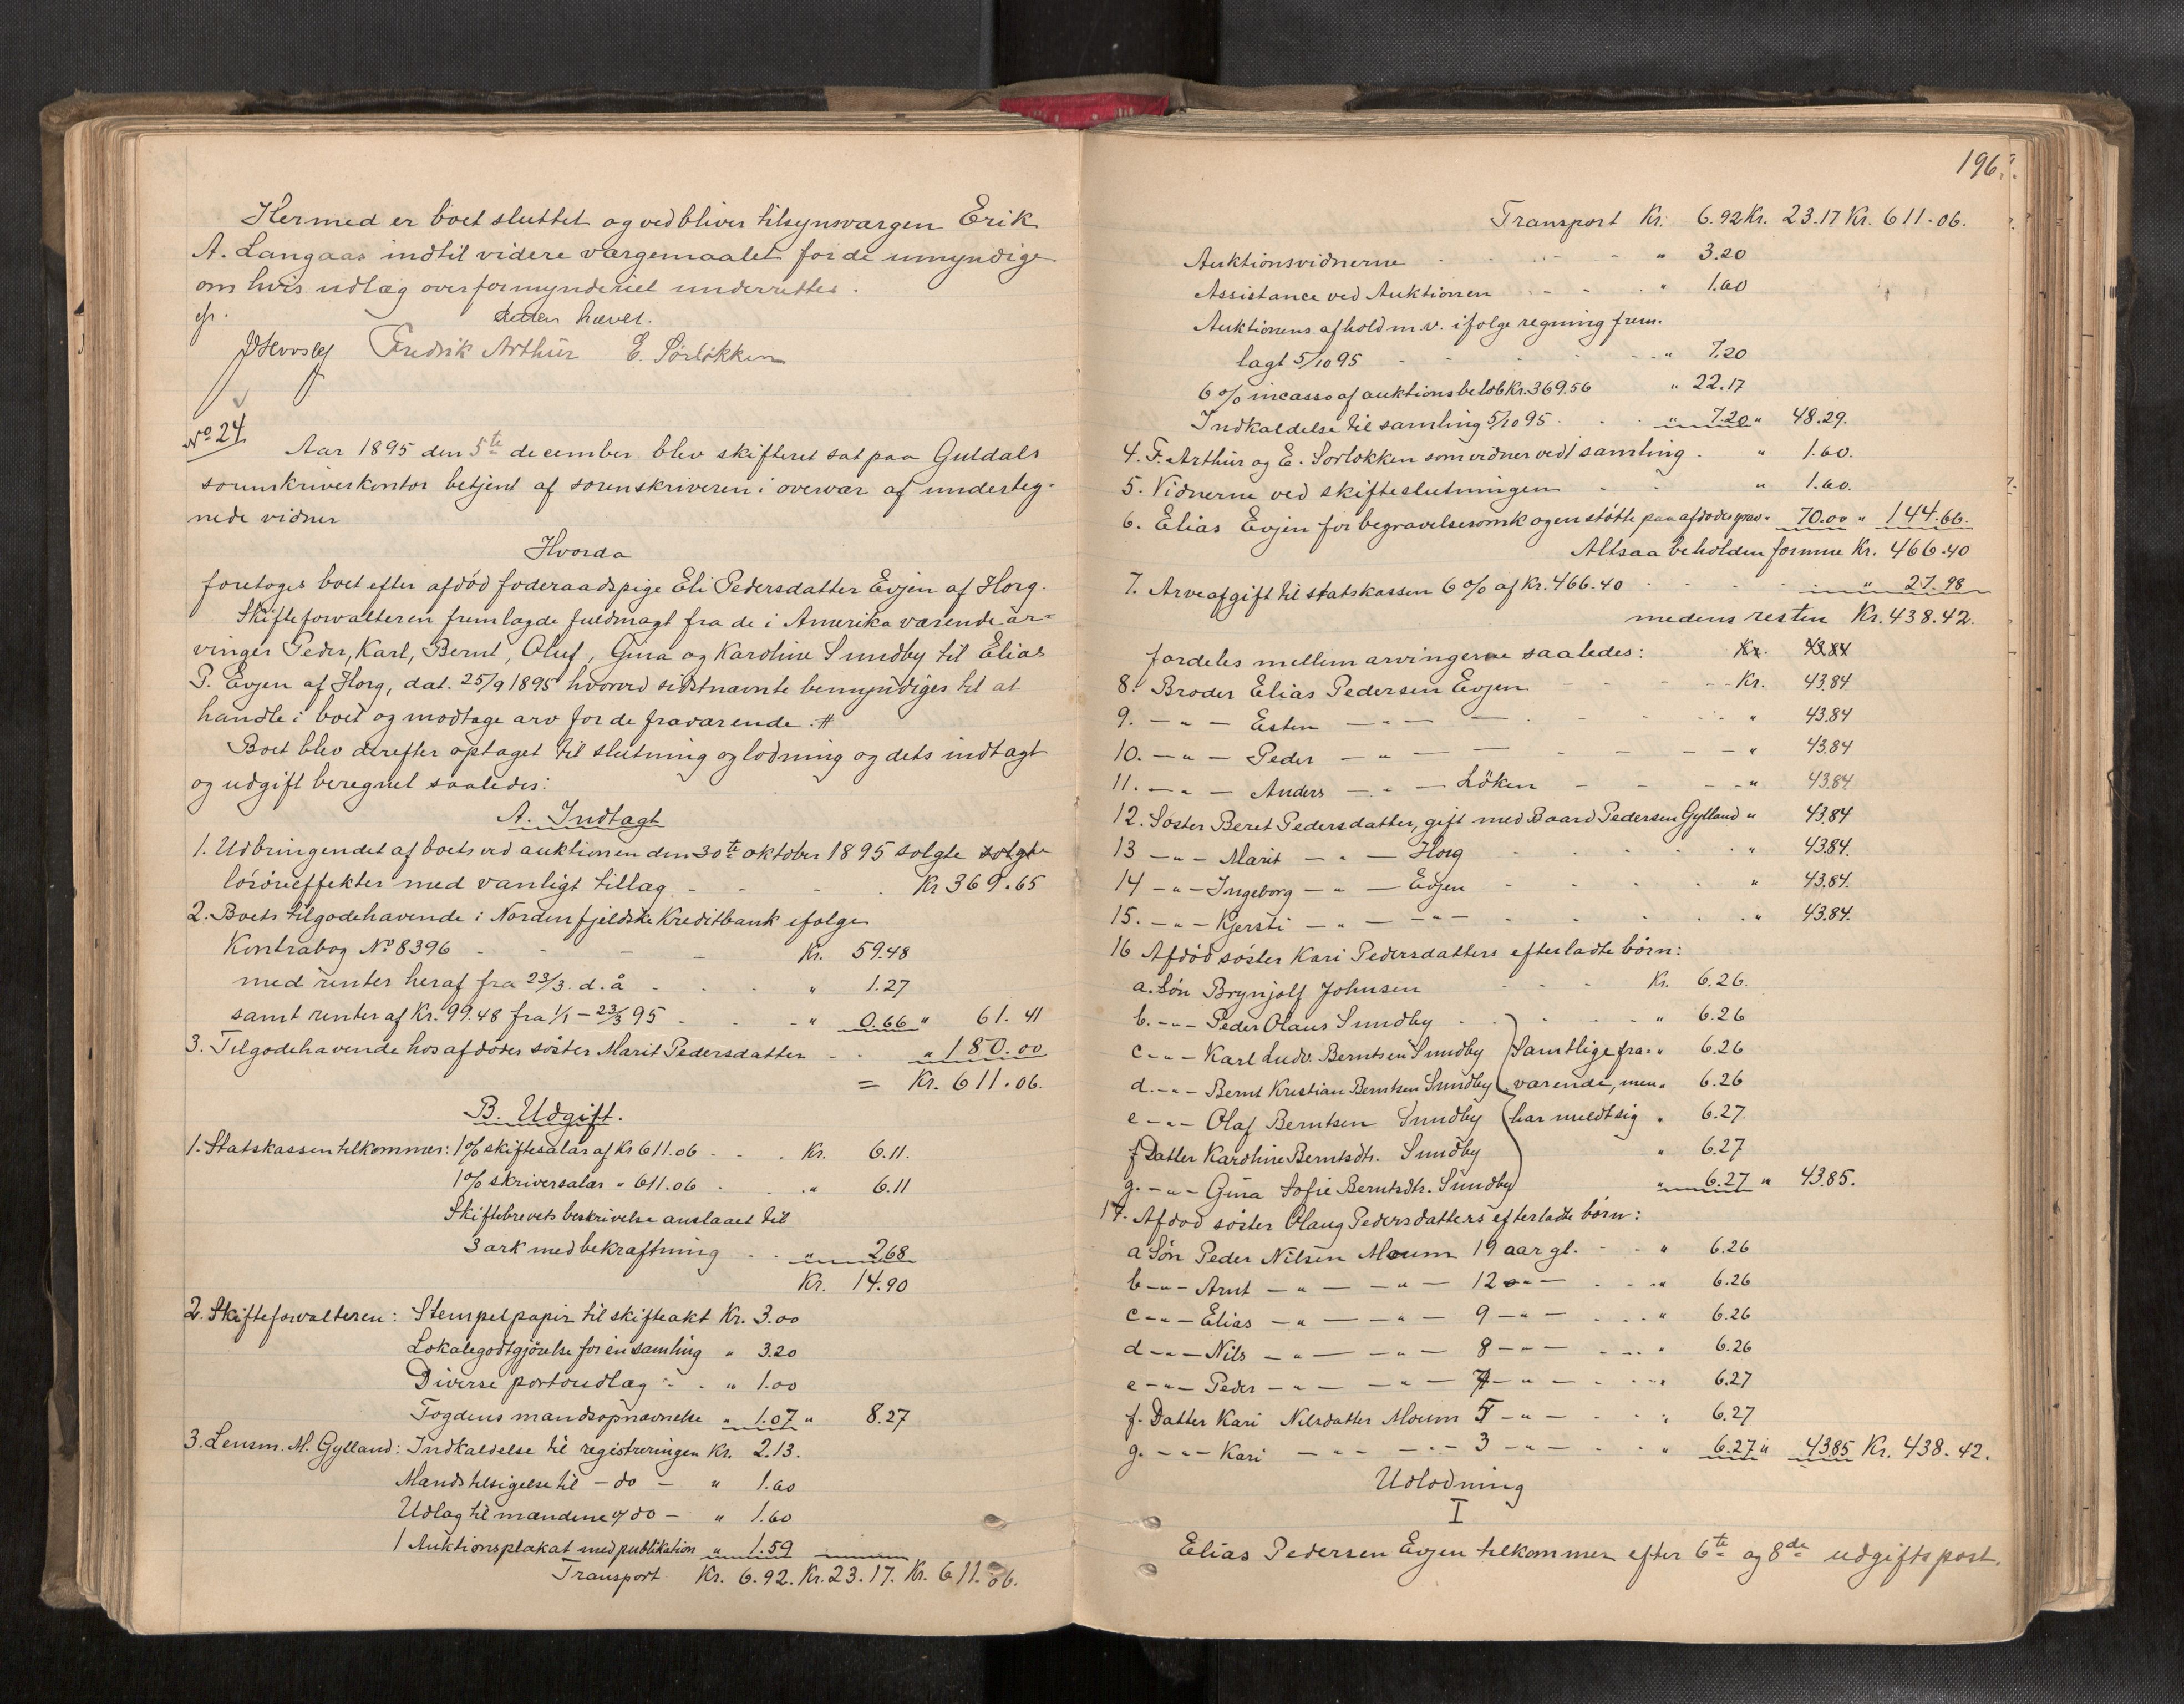 Hermed er boet sluttet og vedbliver tilsynsværgen Erik
A. Langaas indtil videre værgemaalet for de umyndige
om hvis udlæg overformynderiet underrettes.
Retten hævet.
Fredrik Arthur E. Sørløkken
No 24.
Aar 1895 den 5te december blev skifteret sat paa Guldals
sorenskriverkontor betjent af sorenskriveren i overvær af underteg-
nede vidner
Hvorda
foretoges boet efter afdød føderaadspige Eli Pedersdatter Evjen af Horg.
Skifteforvalteren fremlagde fuldmagt fra de i Amerika værende ar-
vinger Peder, Karl, Bernt, Oluf, Gina og Karoline Sundby til Elias
P. Evjen af Horg, dat. 25/9 1895 hvorved sidstnævnte bemyndiges til at
handle i boet og modtage arv for de fraværende. #
Boet blev derefter optaget til slutning og lodning og dets indtægt
og udgift beregnet saaledes:
A. Indtægt
1. Udbringendet af boets ved auktionen den 30te oktober 1895 solgte solgte
løsøreeffekter med vanligt tillæg - - - Kr 369.65
2. Boets tilgodehavende i Nordenfjeldske Kreditbank ifølge
Kontrabog No 8396 - - - - Kr. 59.48
med renter heraf fra 23/3. d. å - - - " 1.27
samt renter af Kr. 99.48 fra 1/1 - 23/3 95 - - " 0.66 " 61.41
3. Tilgodehavende hos afdødes søster Marit Pedersdatter - - " 180.00
= Kr. 611.06.
B. Udgift.
1. Statskassen tilkommer: 1% skiftesalær af Kr 611.06 - - Kr. 6.11.
1% skriversalær " 611.06 - - " 6.11
Skiftebrevets beskrivelse anslaaet til
3 ark med bekræftning - - " 2.68
Kr. 14.90
2. Skifteforvalteren: Stempelpapir til skifteakt Kr. 3.00
Lokalegodtgjørelse for én samling " 3.20
Diverse portoudlæg - - " 1.00
Fogdens mandsopnævnelse " 1.07 " 8.27
3. Lensm. M. Gylland: Indkaldelse til registreringen Kr. 2.13.
Mandstilsigelse til - do - " 1.60
Udlæg til mændene v/ do - " 1.60
1 Auktionsplakat med publikation " 1.59
Transport Kr. 6.92. Kr. 23.17. Kr. 611.06.
196.
Transport Kr. 6.92 Kr. 23.17 Kr. 611.06.
Auktionsvidnerne - - - - " 3.20
Assistance ved Auktionen - - - " 1.60
Auktionens afhold m.v. ifølge regning frem-
lagt 5/10 95 - - - - " 7.20
6% incasso af auktionsbeløb Kr. 369.56 " 22.17
Indkaldelse til samling 5/10 95 - - " 7.20 " 48.29.
4. F. Arthur og E. Sørløkken som vidner ved 1 samling - " 1.60.
5. Vidnerne ved skifteslutningen - - " 1.60.
6. Elias Evjen for begravelsesomk og en støtte paa afdødes grav " 70.00 " 144.66.
Altsaa beholden formue Kr. 466.40
7. Arveafgift til statskassen 6% af Kr. 466.40 - - - - " 27.98
medens resten Kr. 438.42.
fordeles mellem arvingerne saaledes: Kr. 43.84
8. Broder Elias Pedersen Evjen - - - Kr. 43.84
9. - " - Esten - " - - - - - " 43.84
10. - " - Peder - " - - - - - " 43.84
11. - " - Anders - " - Löken - - - " 43.84
12. Søster Beret Pedersdatter, gift med Baard Pedersen Gylland " 43.84
13 - " - Marit - " - Horg - - - " 43.84.
14 - " - Ingeborg - " - Evjen - - - " 43.84.
15. - " - Kjersti - " - - " - - - - " 43.84.
16 Afdød søster Kari Pedersdatters efterladte børn:
a. Søn Brynjolf Johnsen - - - Kr. 6.26.
b. - " - Peder Olaus Sundby - - - " 6.26
c - " - Karl Ludv. Berntsen Sundby Samtlige fra- " 6.26
d. - " - Bernt Kristian Berntsen Sundby værende, men " 6.26
e - " - Olaf Berntsen Sundby har meldt sig " 6.27.
f Datter Karoline Berntsdtr. Sundby " 6.27
g. - " - Gina Sofie Berntsdtr. Sundby " 6.27 " 43.85.
17. Afdød søster Olaug Pedersdatters efterladte børn:
a Søn Peder Nilsen Moum 19 aar gl. - - " 6.26
b - " - Arnt - " - - " - 12 - " - - - " 6.26
c - " - Elias - " - - " - 9 - " - - - " 6.26
d - " - Nils - " - - " - 8 - " - - - " 6.26
e - " - Peder - " - - " - 7 - " - - - " 6.27
f. Datter Kari Nilsdatter Moum 5 - " - - - " 6.27
g. - " - Kari - " - - " - 3 - " - - - " 6.27 " 43.85 Kr. 438.42.
Udlodning
I
Elias Pedersen Evjen tilkommer efter 6te og 8de udgiftspost.